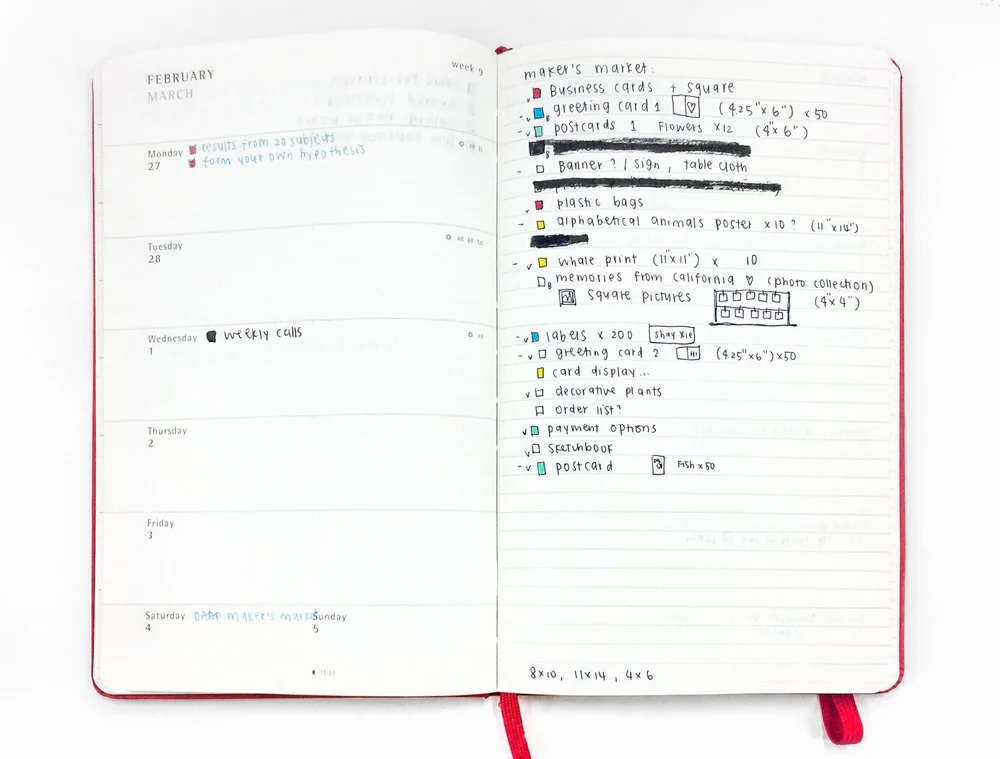 FEBRUARY
MARCH
week 9
Monday
27
results from 20 subjects
form your own hypothesis
Tuesday
28
Wednesday
1
weekly calls
Thursday
2
Friday
3
Saturday
4
DAAP maker's market
Sunday
5
11:33
maker's market:
Business cards + square
greeting card 1 (4.25"x6") x50
postcards 1 Flowers x12 (4"x6")
Banner? / sign, table cloth
plastic bags
alphabetical animals poster x10? (11"x14")
whale print (11"x11") x 10
memories from california ♡ (photo collection)
square pictures (4"x4")
labels x 200 shay xie
greeting card 2 HI (4.25"x6") x50
card display...
decorative plants
order list?
payment options
sketchbook
postcard Fish x50
8x10, 11x14, 4x6